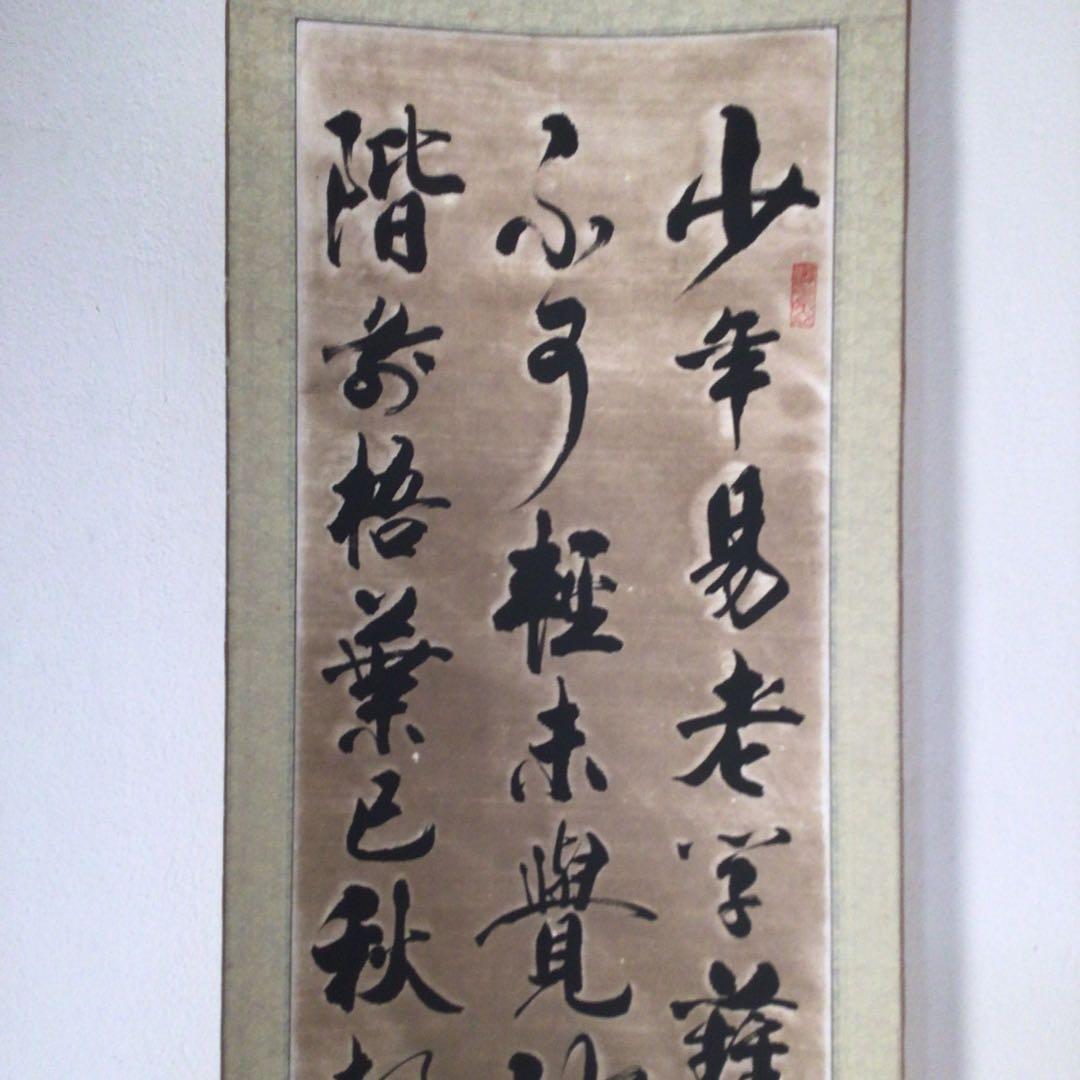 少年易老学難
不可輕未覺
階前梧葉已秋